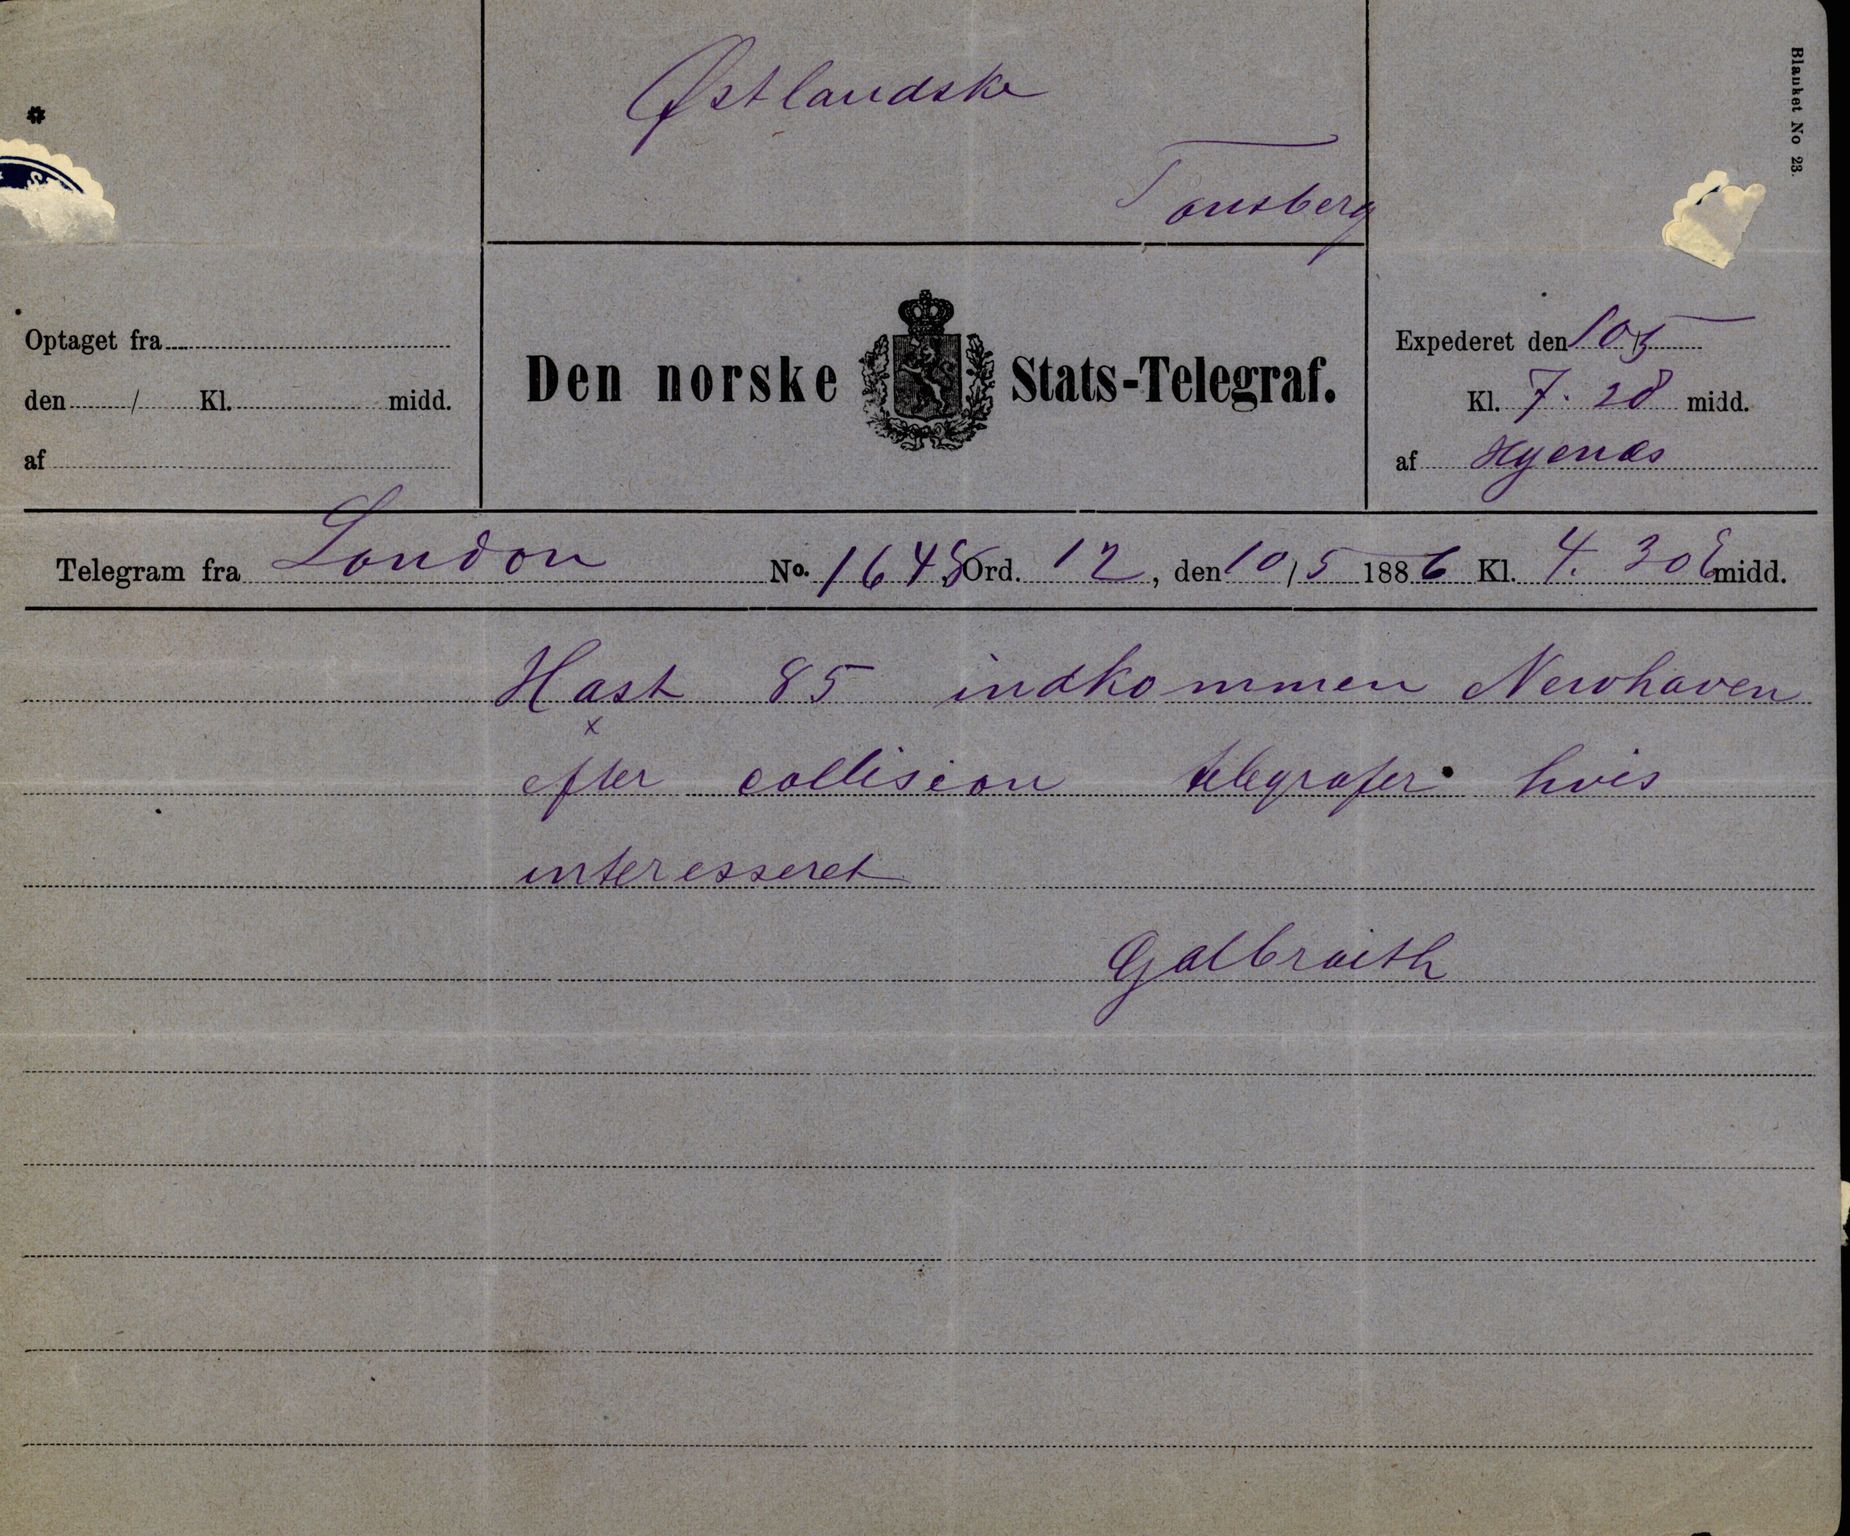 Blanket No 23.
Østlandske
Tonsberg
Optaget fra
den / Kl. midd.
af
Den norske Stats-Telegraf.
Expederet den 10/5
Kl. 7.28 midd.
af
Telegram fra London No. 1648 Ord. 12, den 10/5 1886 Kl. 4.30 E midd.
Hast 85 indkommen Newhaven
x
efter collision telegrafer hvis
interesseret
Galbraith